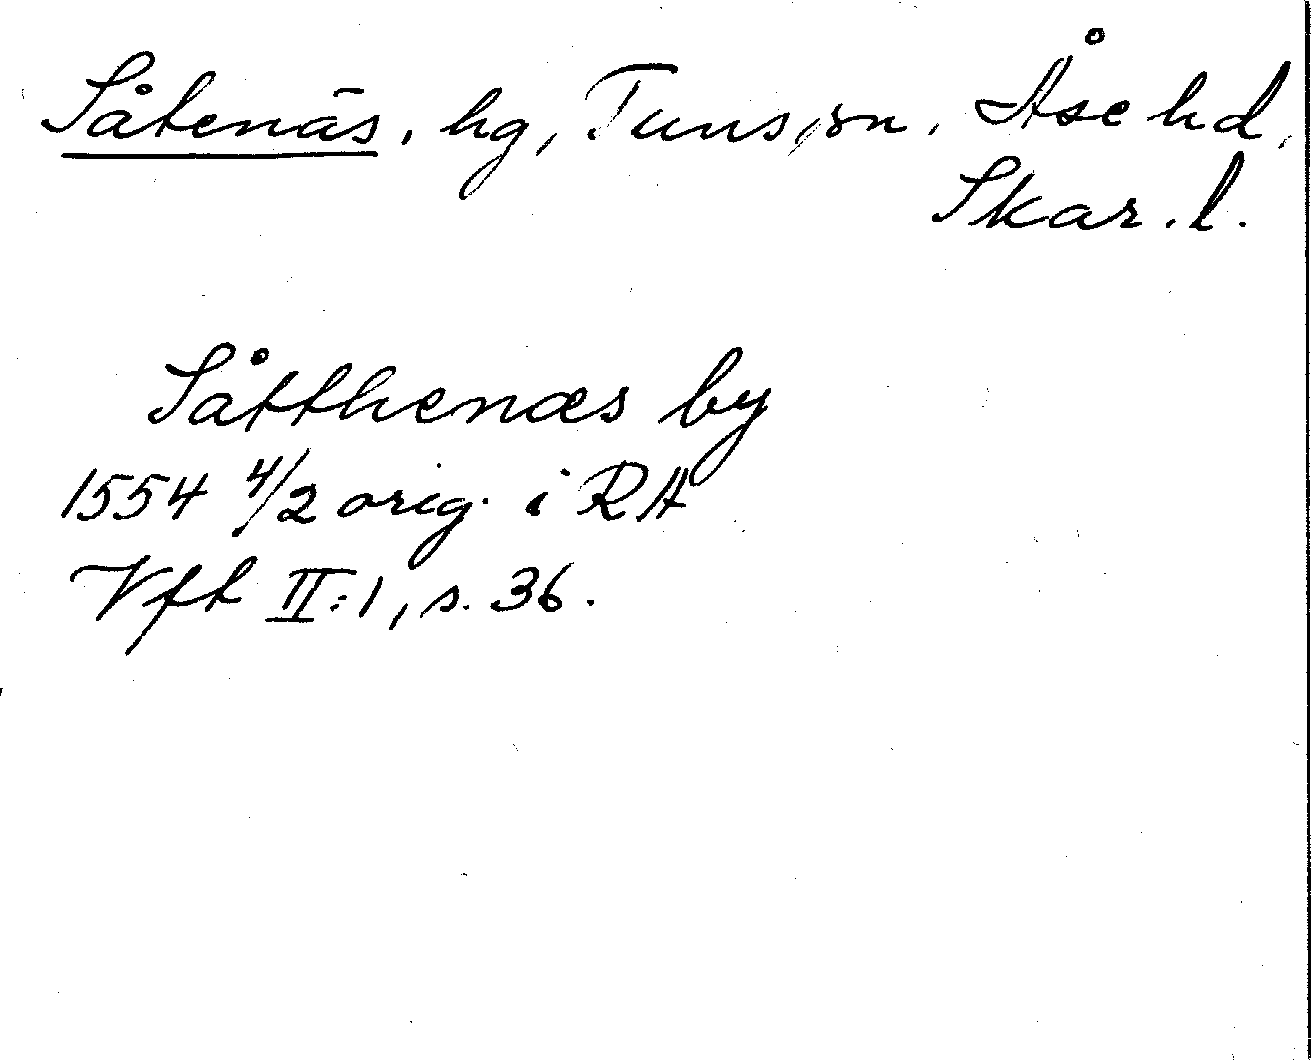 Såtenäs, hg, Tuns, sn, Åse hd,
Skar. l.
Såtthenæs by
1554 4/2 orig. i RA
Vft II:1, s. 36.